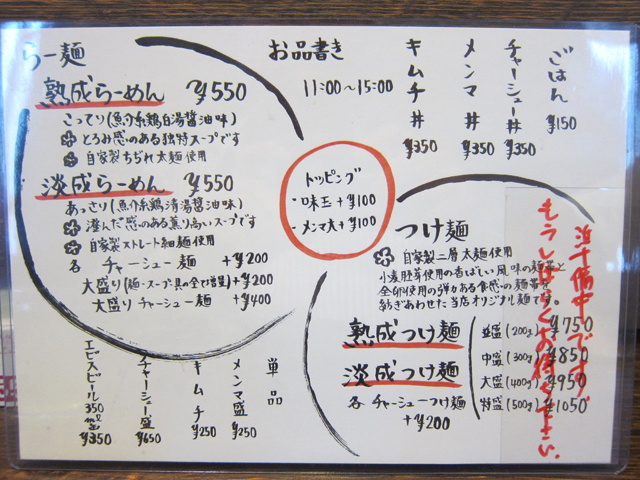 らー麺
熟成らーめん ¥550
こってり(魚介系鶏白湯醤油味)
とろみ感のある独特スープです
自家製もちぢれ太麺使用
淡成らーめん ¥550
あっさり(魚介系鶏清湯醤油味)
澄んだ感のある薫り高いスープです
自家製ストレート細麺使用
各 チャーシュー麺 +¥200
大盛り(麺・スープ・具の全て増量)+¥200
大盛りチャーシュー麺 +¥400
お品書き
11:00〜15:00
ごはん ¥150
チャーシュー丼 ¥350
メンマ丼 ¥350
キムチ丼 ¥350
トッピング
・味玉+¥100
・メンマ大+¥100
つけ麺
自家製二層太麺使用
小麦胚芽使用の香ばしい風味の麺帯と
全卵使用の弾力ある食感の麺帯を
紡ぎあわせた当店オリジナル麺です。
熟成つけ麺
淡成つけ麺
各 チャーシューつけ麺
+¥200
並盛(200g) ¥750
中盛(300g) ¥850
大盛(400g) ¥950
特盛(500g) ¥1050
準備中です
もうしばらくお待ち下さい。
単品
メンマ盛 ¥250
キムチ ¥250
チャーシュー盛 ¥650
エビスビール350㎖缶 ¥350